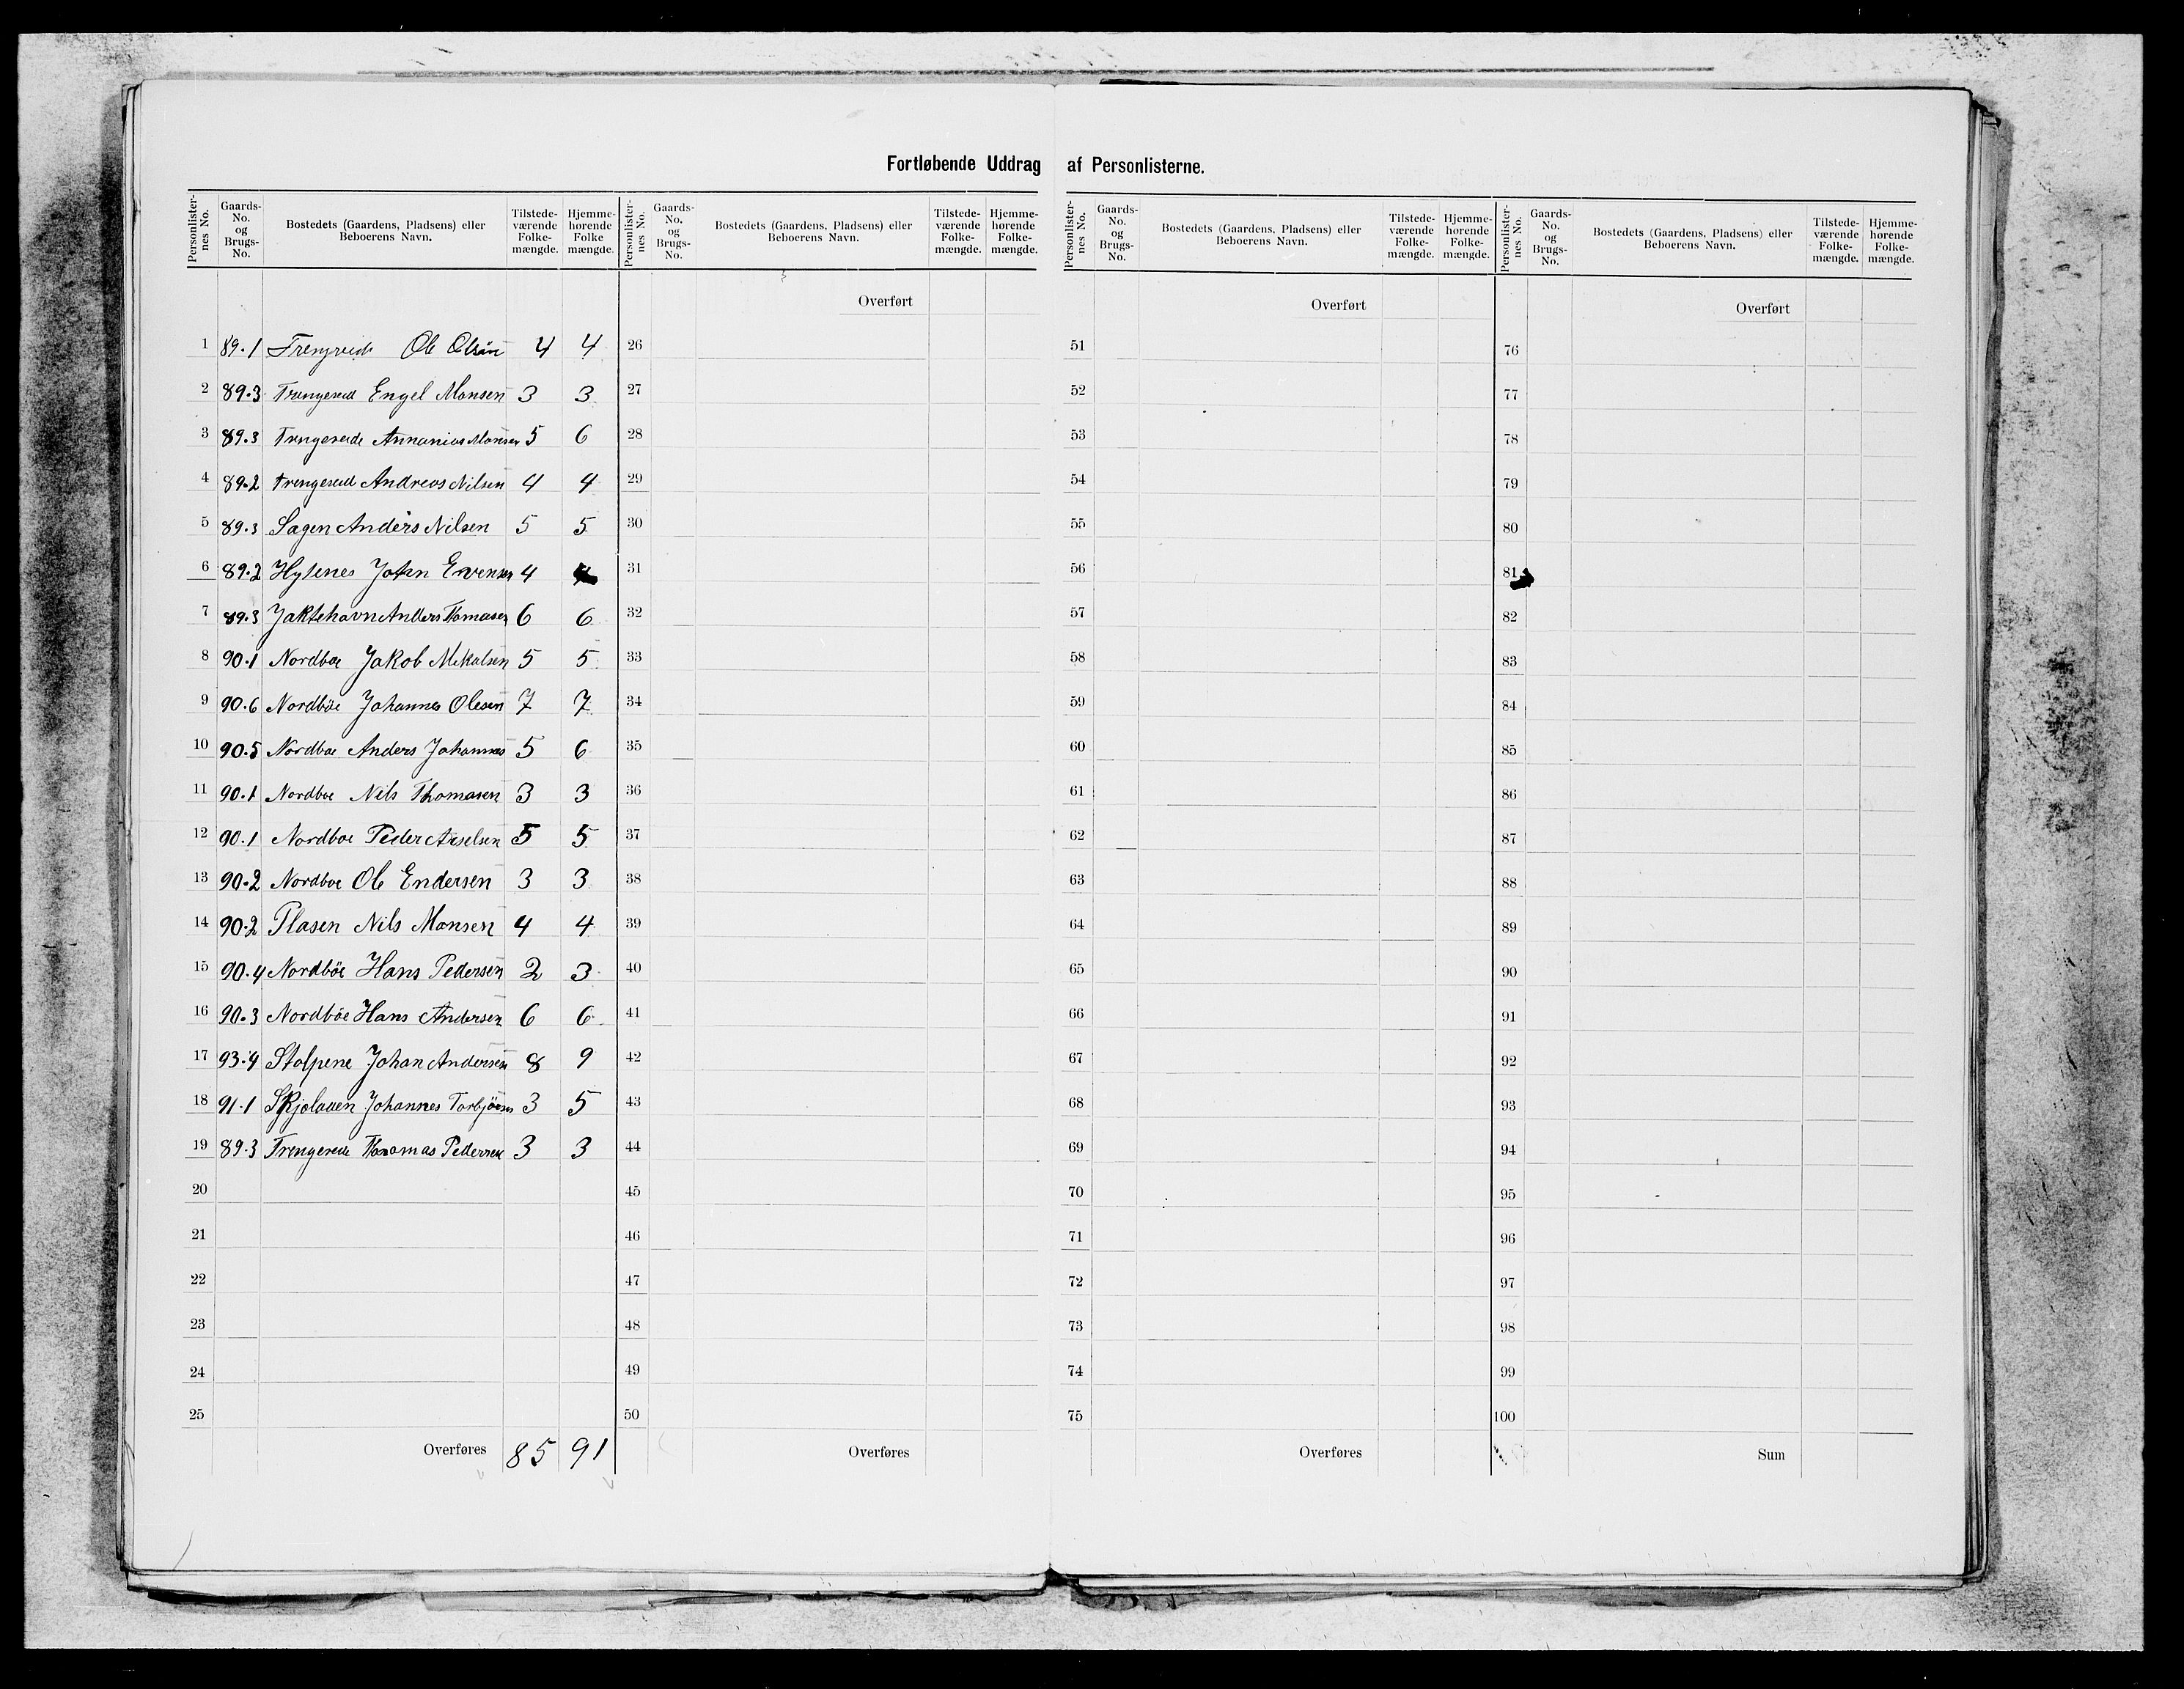 Fortløbende Uddrag af Personlisterne.
Personlister-nes No. | Gaards-No. og Brugs-No. | Bostedets (Gaardens, Pladsens) eller Beboerens Navn. | Tilstede-værende Folke-mængde. | Hjemme-hørende Folke mængde.
1 89.1 Ole Olsøn 4 4
2 89.3 Trengereid Engel Monsen 3 3
3 89.3 Trengereide Annanias Monsen 5 6
4 89.2 Trengereid Andreas Nilsen 4 4
5 89.3 Sagen Anders Nilsen 5 5
6 89.2 Hylsenes John Evensen 4
7 89.3 Jaktehavn Anders Thomasen 6 6
8 90.1 Nordboe Jakob Mikalsen 5 5
9 90.6 Nordböe Johannes Olesen 7 7
10 90.5 Nordboe Anders Johannes 5 6
11 90.1 Nordboe Nils Thomasen 3 3
12 90.1 Nordboe Peder Akselsen 5 5
13 90.2 Nordboe Ole Endersen 3 3
14 90.2 Plasen Nils Monsen 4 4
15 90.4 Nordböe Hans Pedersen 2 3
16 90.3 Nordböe Hans Andersen 6 6
17 93.4 Stolpene Johan Andersen 8 9
18 91.1 Skjelaaen Johannes Torbjörns 3 5
19 89.3 Trengereide Thomas Pedersen 3 3
20
21
22
23
24
25
Overføres 85 91
Personlister-nes No. | Gaards-No. og Brugs-No. | Bostedets (Gaardens, Pladsens) eller Beboerens Navn. | Tilstede-værende Folke-mængde. | Hjemme-hørende Folke-mængde.
Overført
26
27
28
29
30
31
32
33
34
35
36
37
38
39
40
41
42
43
44
45
46
47
48
49
50
Overføres
Personlister-nes No. | Gaards-No. og Brugs-No. | Bostedets (Gaardens, Pladsens) eller Beboerens Navn. | Tilstede-værende Folke-mængde. | Hjemme-hørende Folke-mængde.
Overført
51
52
53
54
55
56
57
58
59
60
61
62
63
64
65
66
67
68
69
70
71
72
73
74
75
Overføres
Personlister-nes No. | Gaards-No. og Brugs-No. | Bostedets (Gaardens, Pladsens) eller Beboerens Navn. | Tilstede-værende Folke-mængde. | Hjemme-hørende Folke-mængde.
Overført
76
77
78
79
80
81
82
83
84
85
86
87
88
89
90
91
92
93
94
95
96
97
98
99
100
Sum